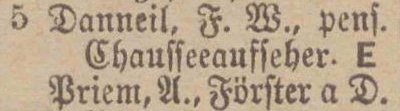 5 Danneil, F. W., penſ.
Chauſſeeaufſeher. E
Priem, A., Förſter a D.